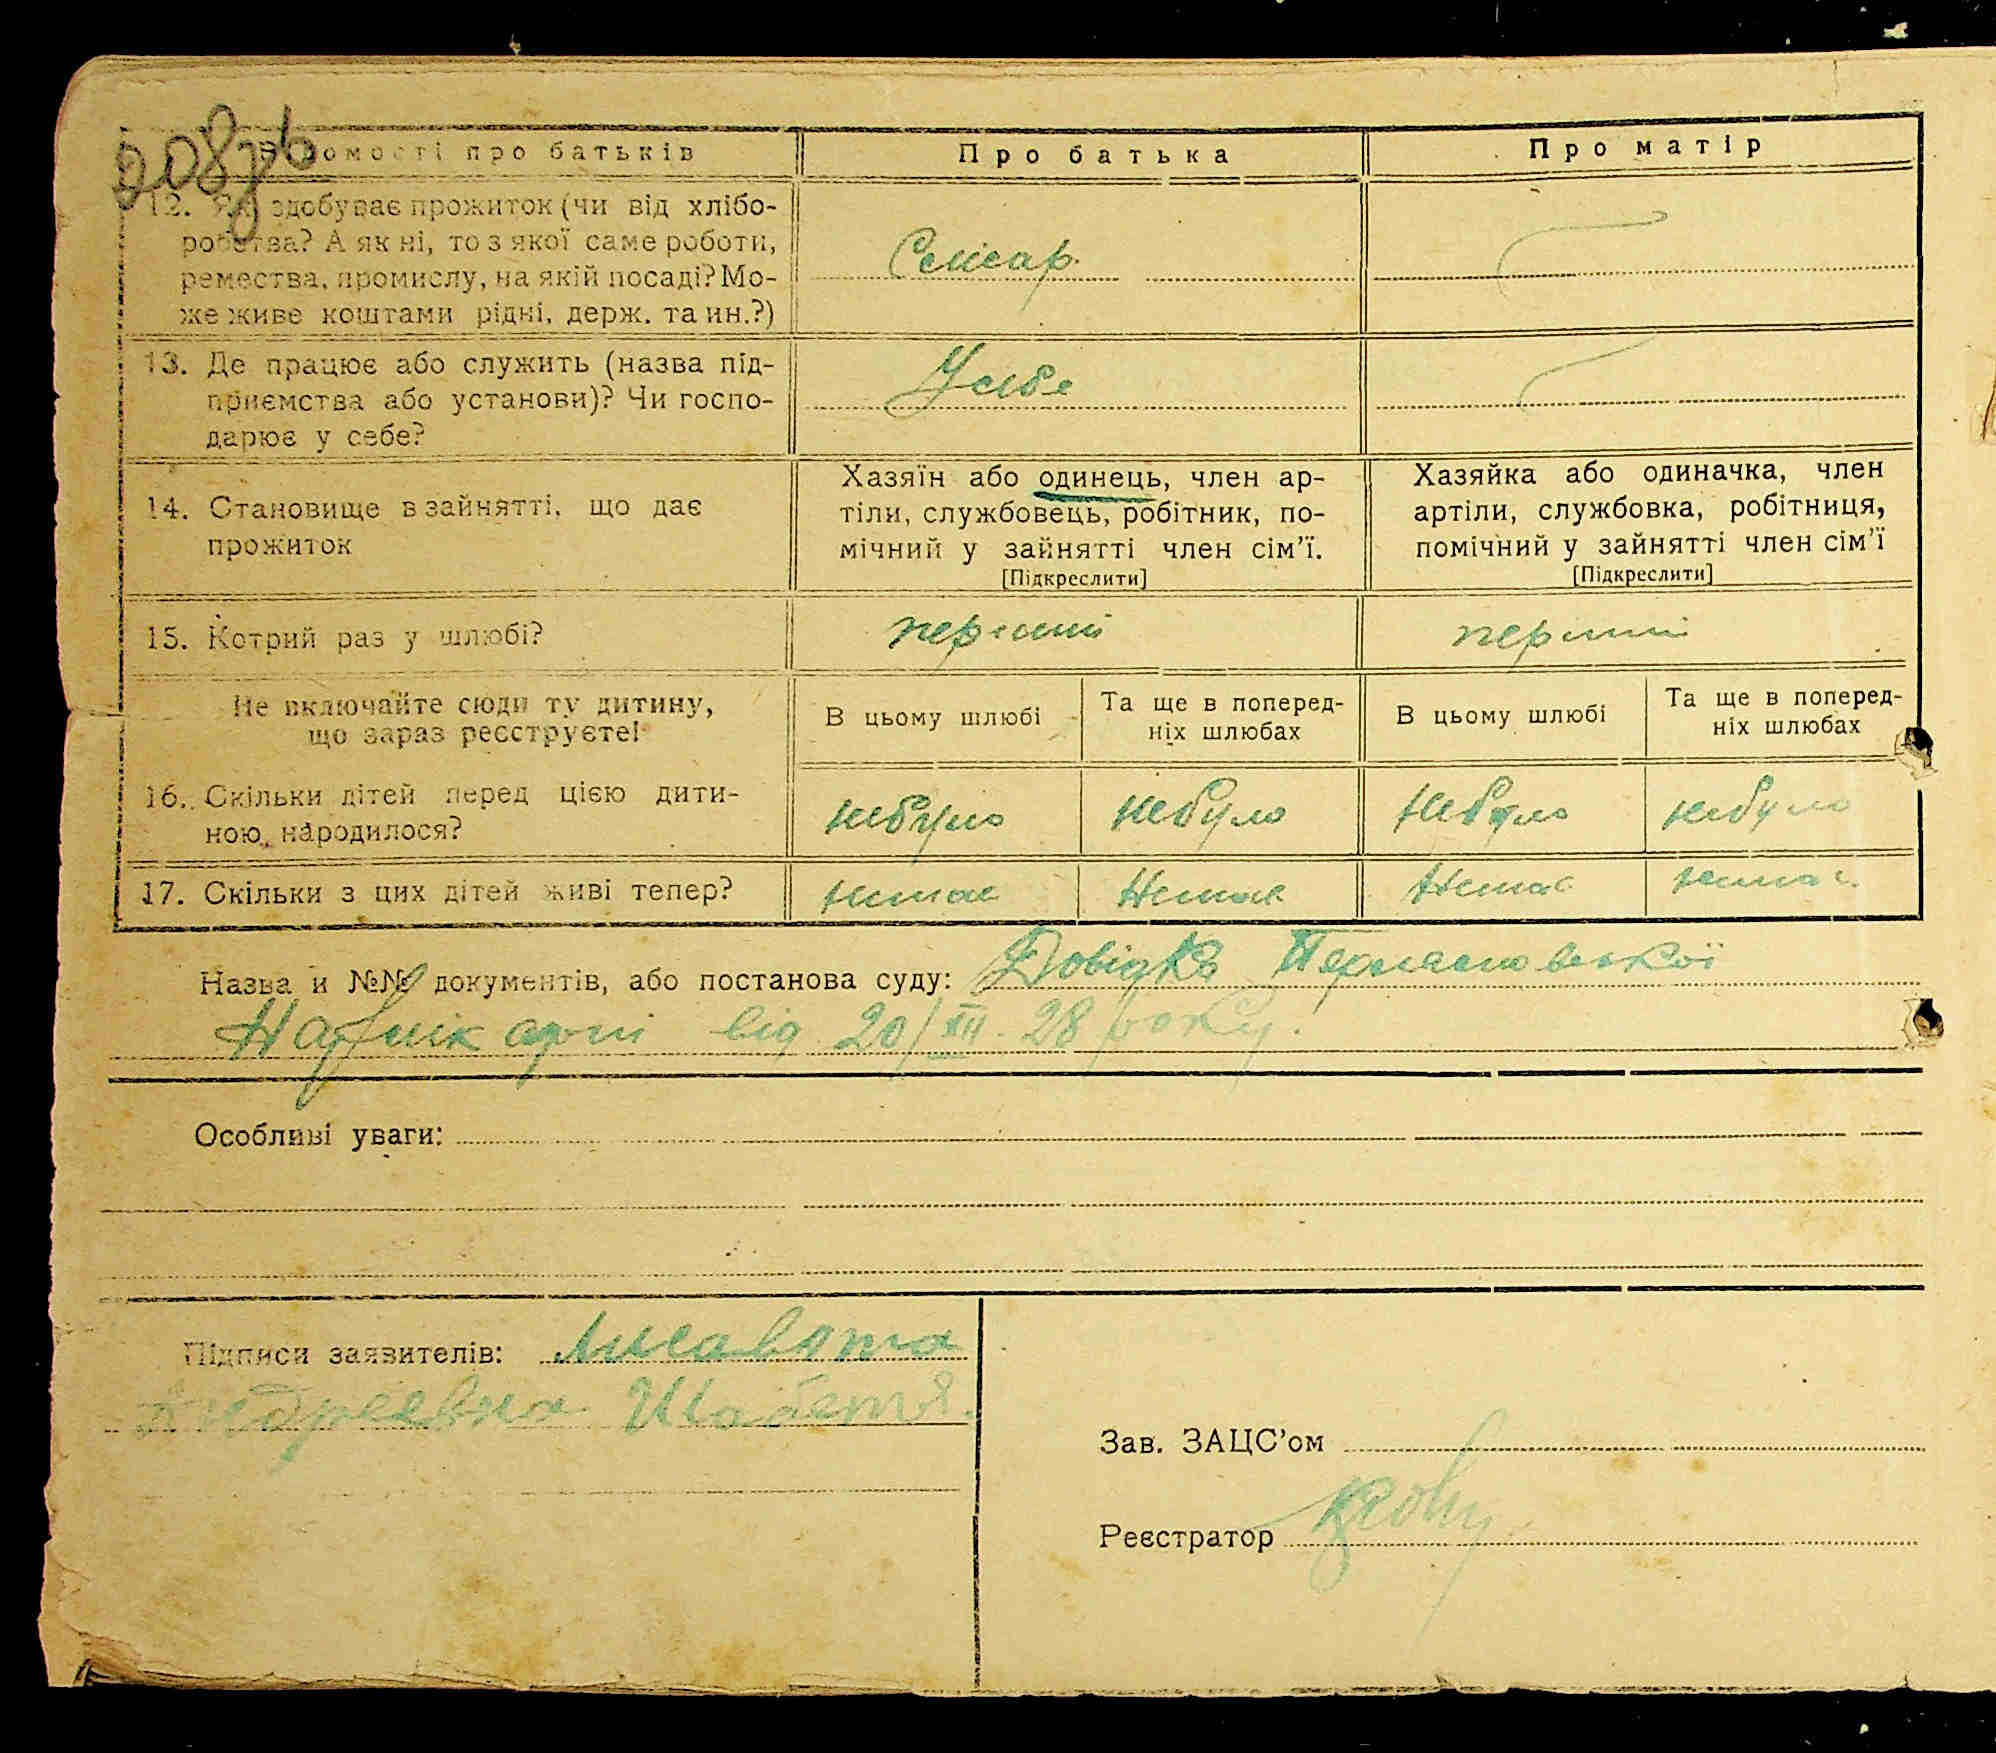 208зв
Відомості про батьків
Про батька
Про матір
12. Як здобуває прожиток (чи від хлібо-
робства? А як ні, то з якої саме роботи,
ремества, промислу, на якій посаді? Мо-
же живе коштами рідні, держ. та ин.?)
Слюсар
13. Де працює або служить (назва під-
приємства або установи)? Чи госпо-
дарює у себе?
У себе
14. Становище в зайнятті, що дає
прожиток
Хазяїн або одинець, член ар-
тіли, службовець, робітник, по-
мічний у зайнятті член сім’ї.
[Підкреслити]
Хазяйка або одиначка, член
артіли, службовка, робітниця,
помічний у зайнятті член сім’ї
[Підкреслити]
15. Котрий раз у шлюбі?
перший
перший
Не включайте сюди ту дитину,
що зараз реєструєте!
В цьому шлюбі
Та ще в поперед-
ніх шлюбах
В цьому шлюбі
Та ще в поперед-
ніх шлюбах
16. Скільки дітей перед цією дити-
ною народилося?
небуло
небуло
небуло
небуло
17. Скільки з цих дітей живі тепер?
немає
немає
немає
немає
Назва и №№ документів, або постанова суду: Довідка
від 20/XII 28 року.
Особливі уваги:
Підписи заявителів: Лисавета
Андреевна Шабетя.
Зав. ЗАЦС’ом
Реєстратор